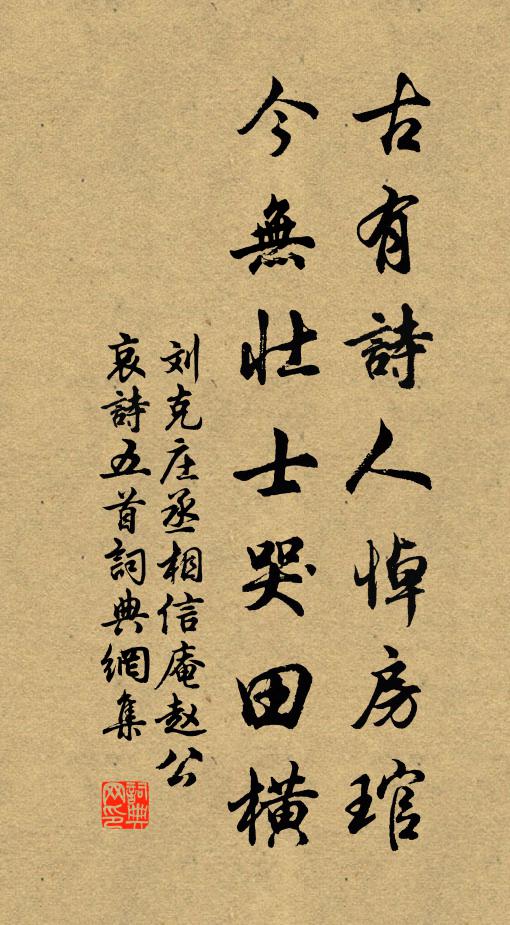 古有詩人悼房琯
今無壯士哭田横
刘克庄丞相信庵赵公
哀詩五首詞典網集
詞典
网印